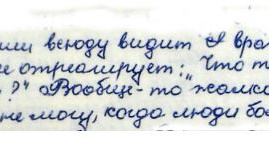 или всюду видит я вра
не отреагирует: „Что т
?" Вообще-то жалко
не могу, когда люди бо